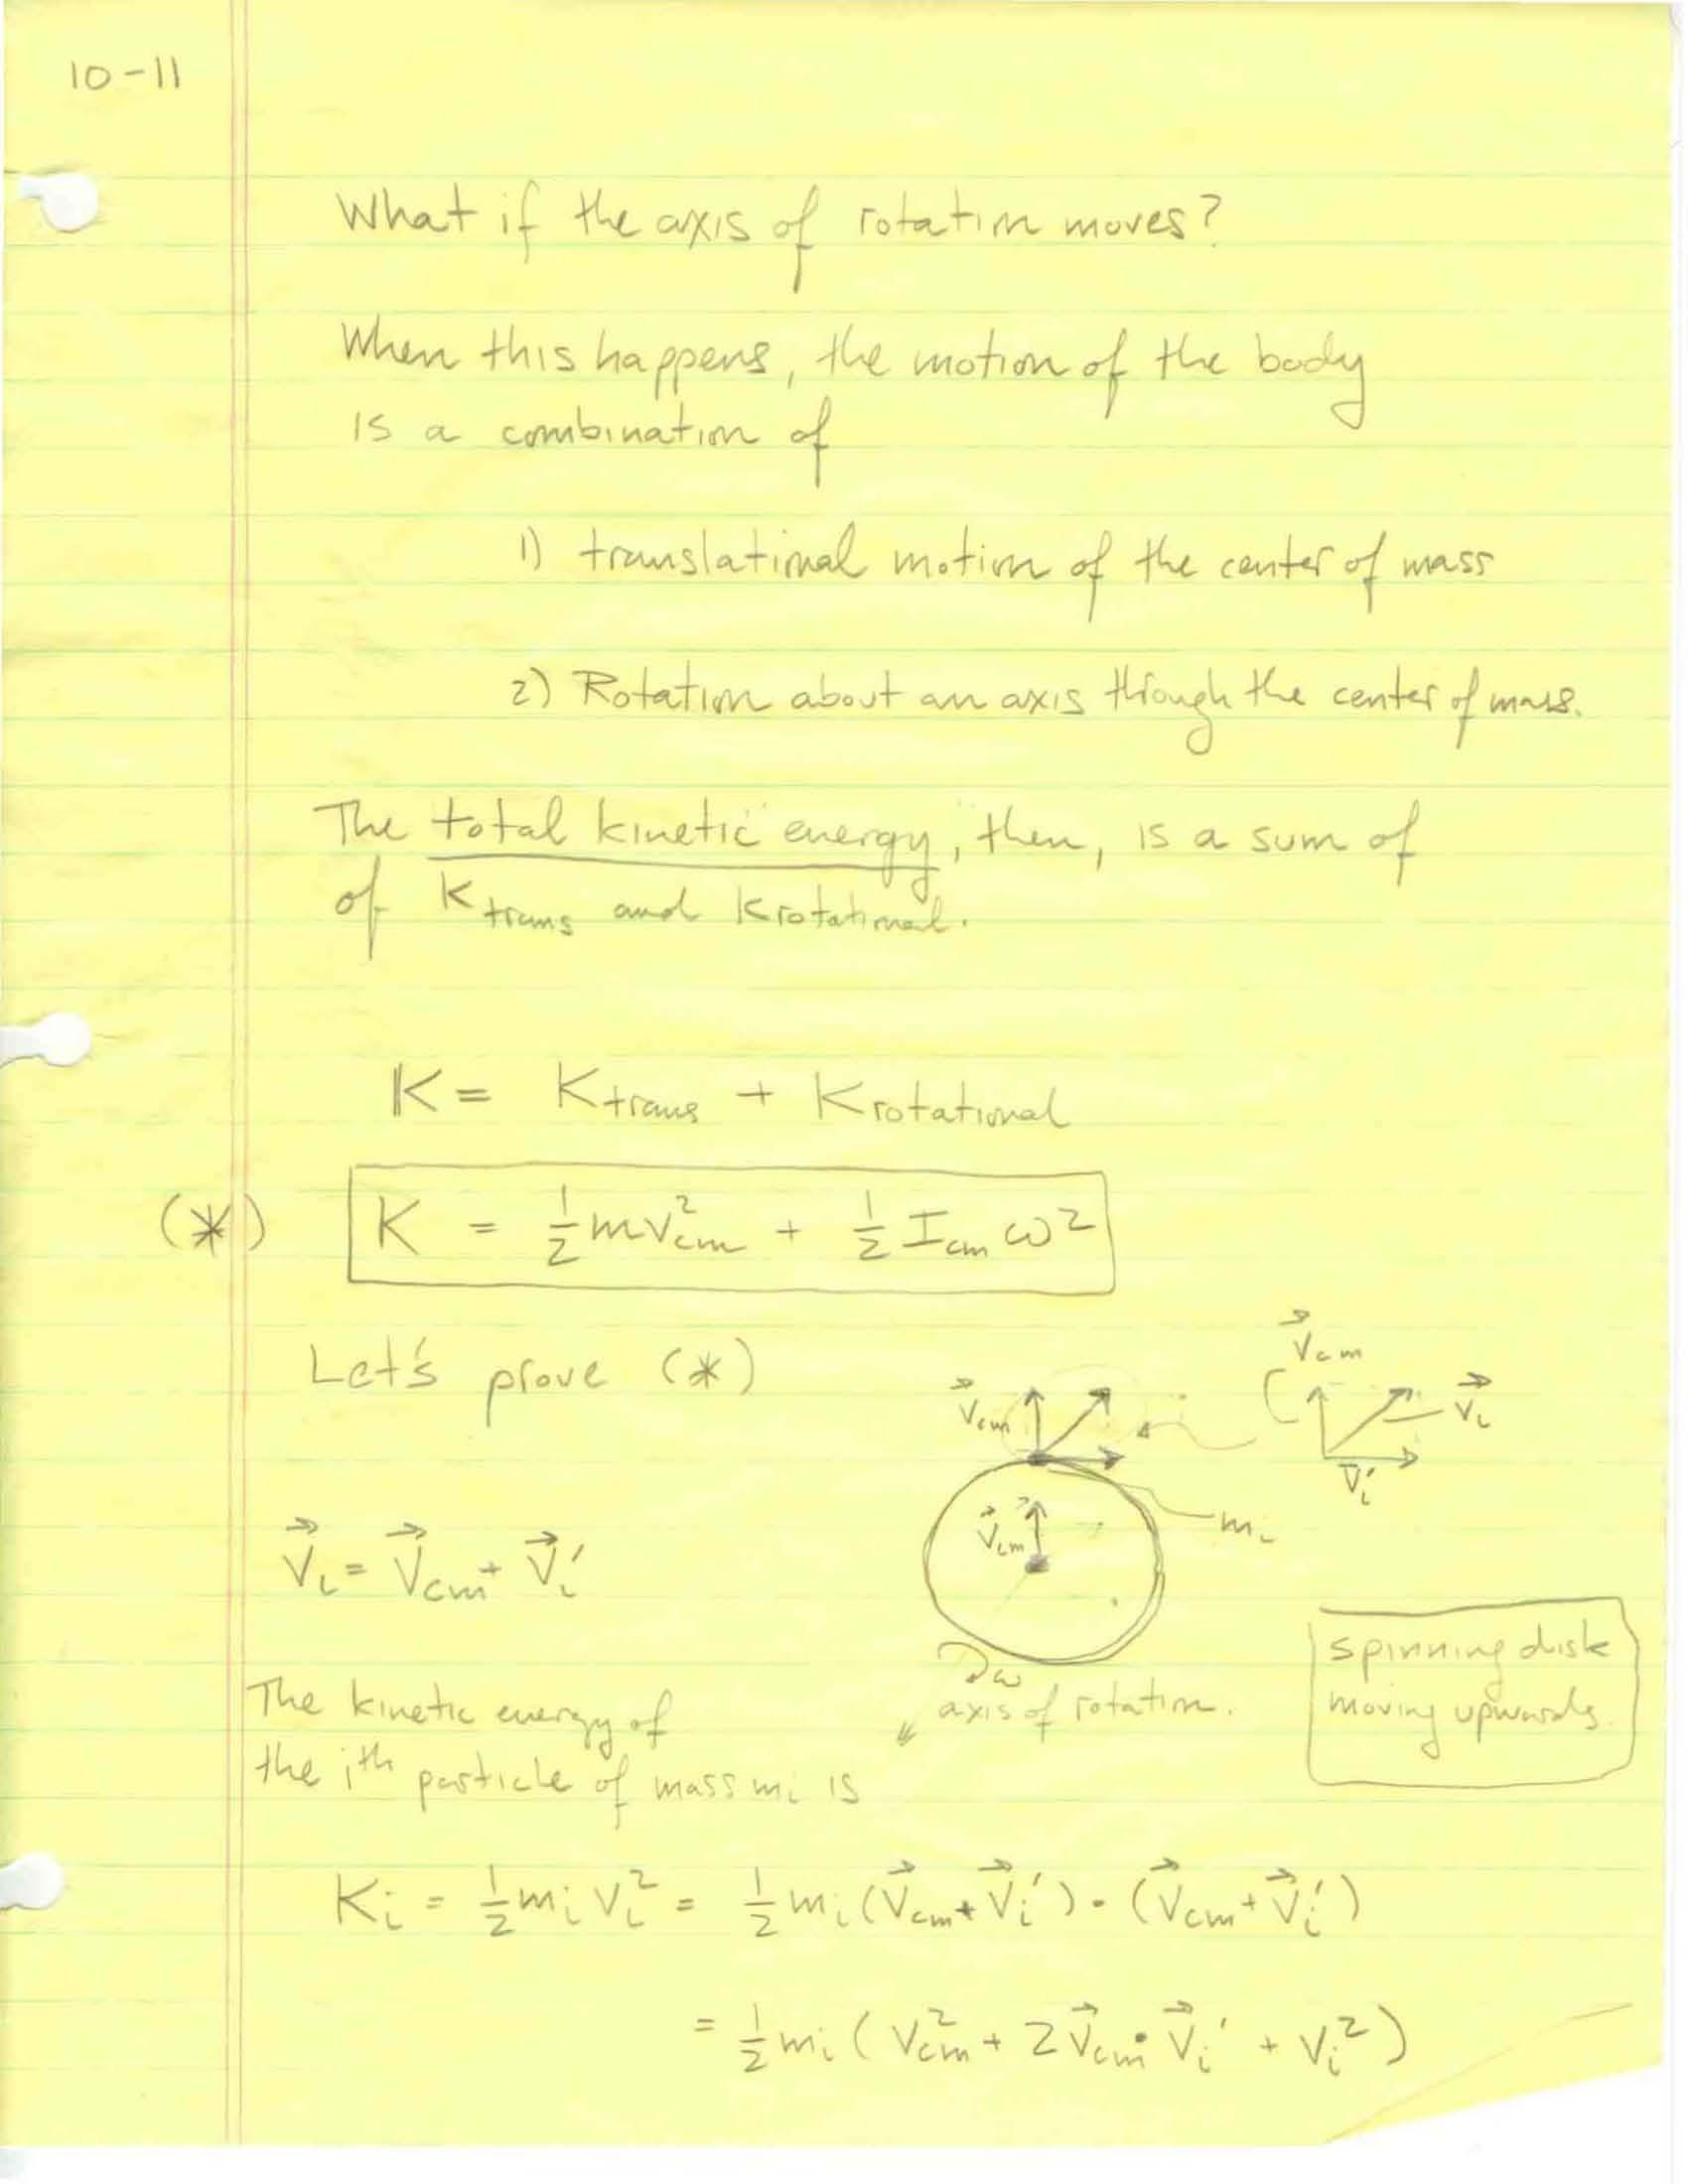 10-11
What if the axis of rotation moves?
When this happens, the motion of the body
is a combination of
1) translational motion of the center of mass
2) Rotation about an axis through the center of mass.
The total kinetic energy, then, is a sum of
of K trans and K rotational.
K = K trans + K rotational
(*) K = 1/2 m v²cm + 1/2 I cm ω²
Let's prove (*)
V⃗cm
V⃗cm
V⃗i
V⃗i'
V⃗cm
mi
V⃗i = V⃗cm + V⃗i'
spinning disk
moving upwards.
ω
axis of rotation.
The kinetic energy of
the ith particle of mass mi is
Ki = 1/2 mi Vi² = 1/2 mi (V⃗cm + V⃗i') · (V⃗cm + V⃗i')
= 1/2 mi (V²cm + 2 V⃗cm · V⃗i' + Vi²)